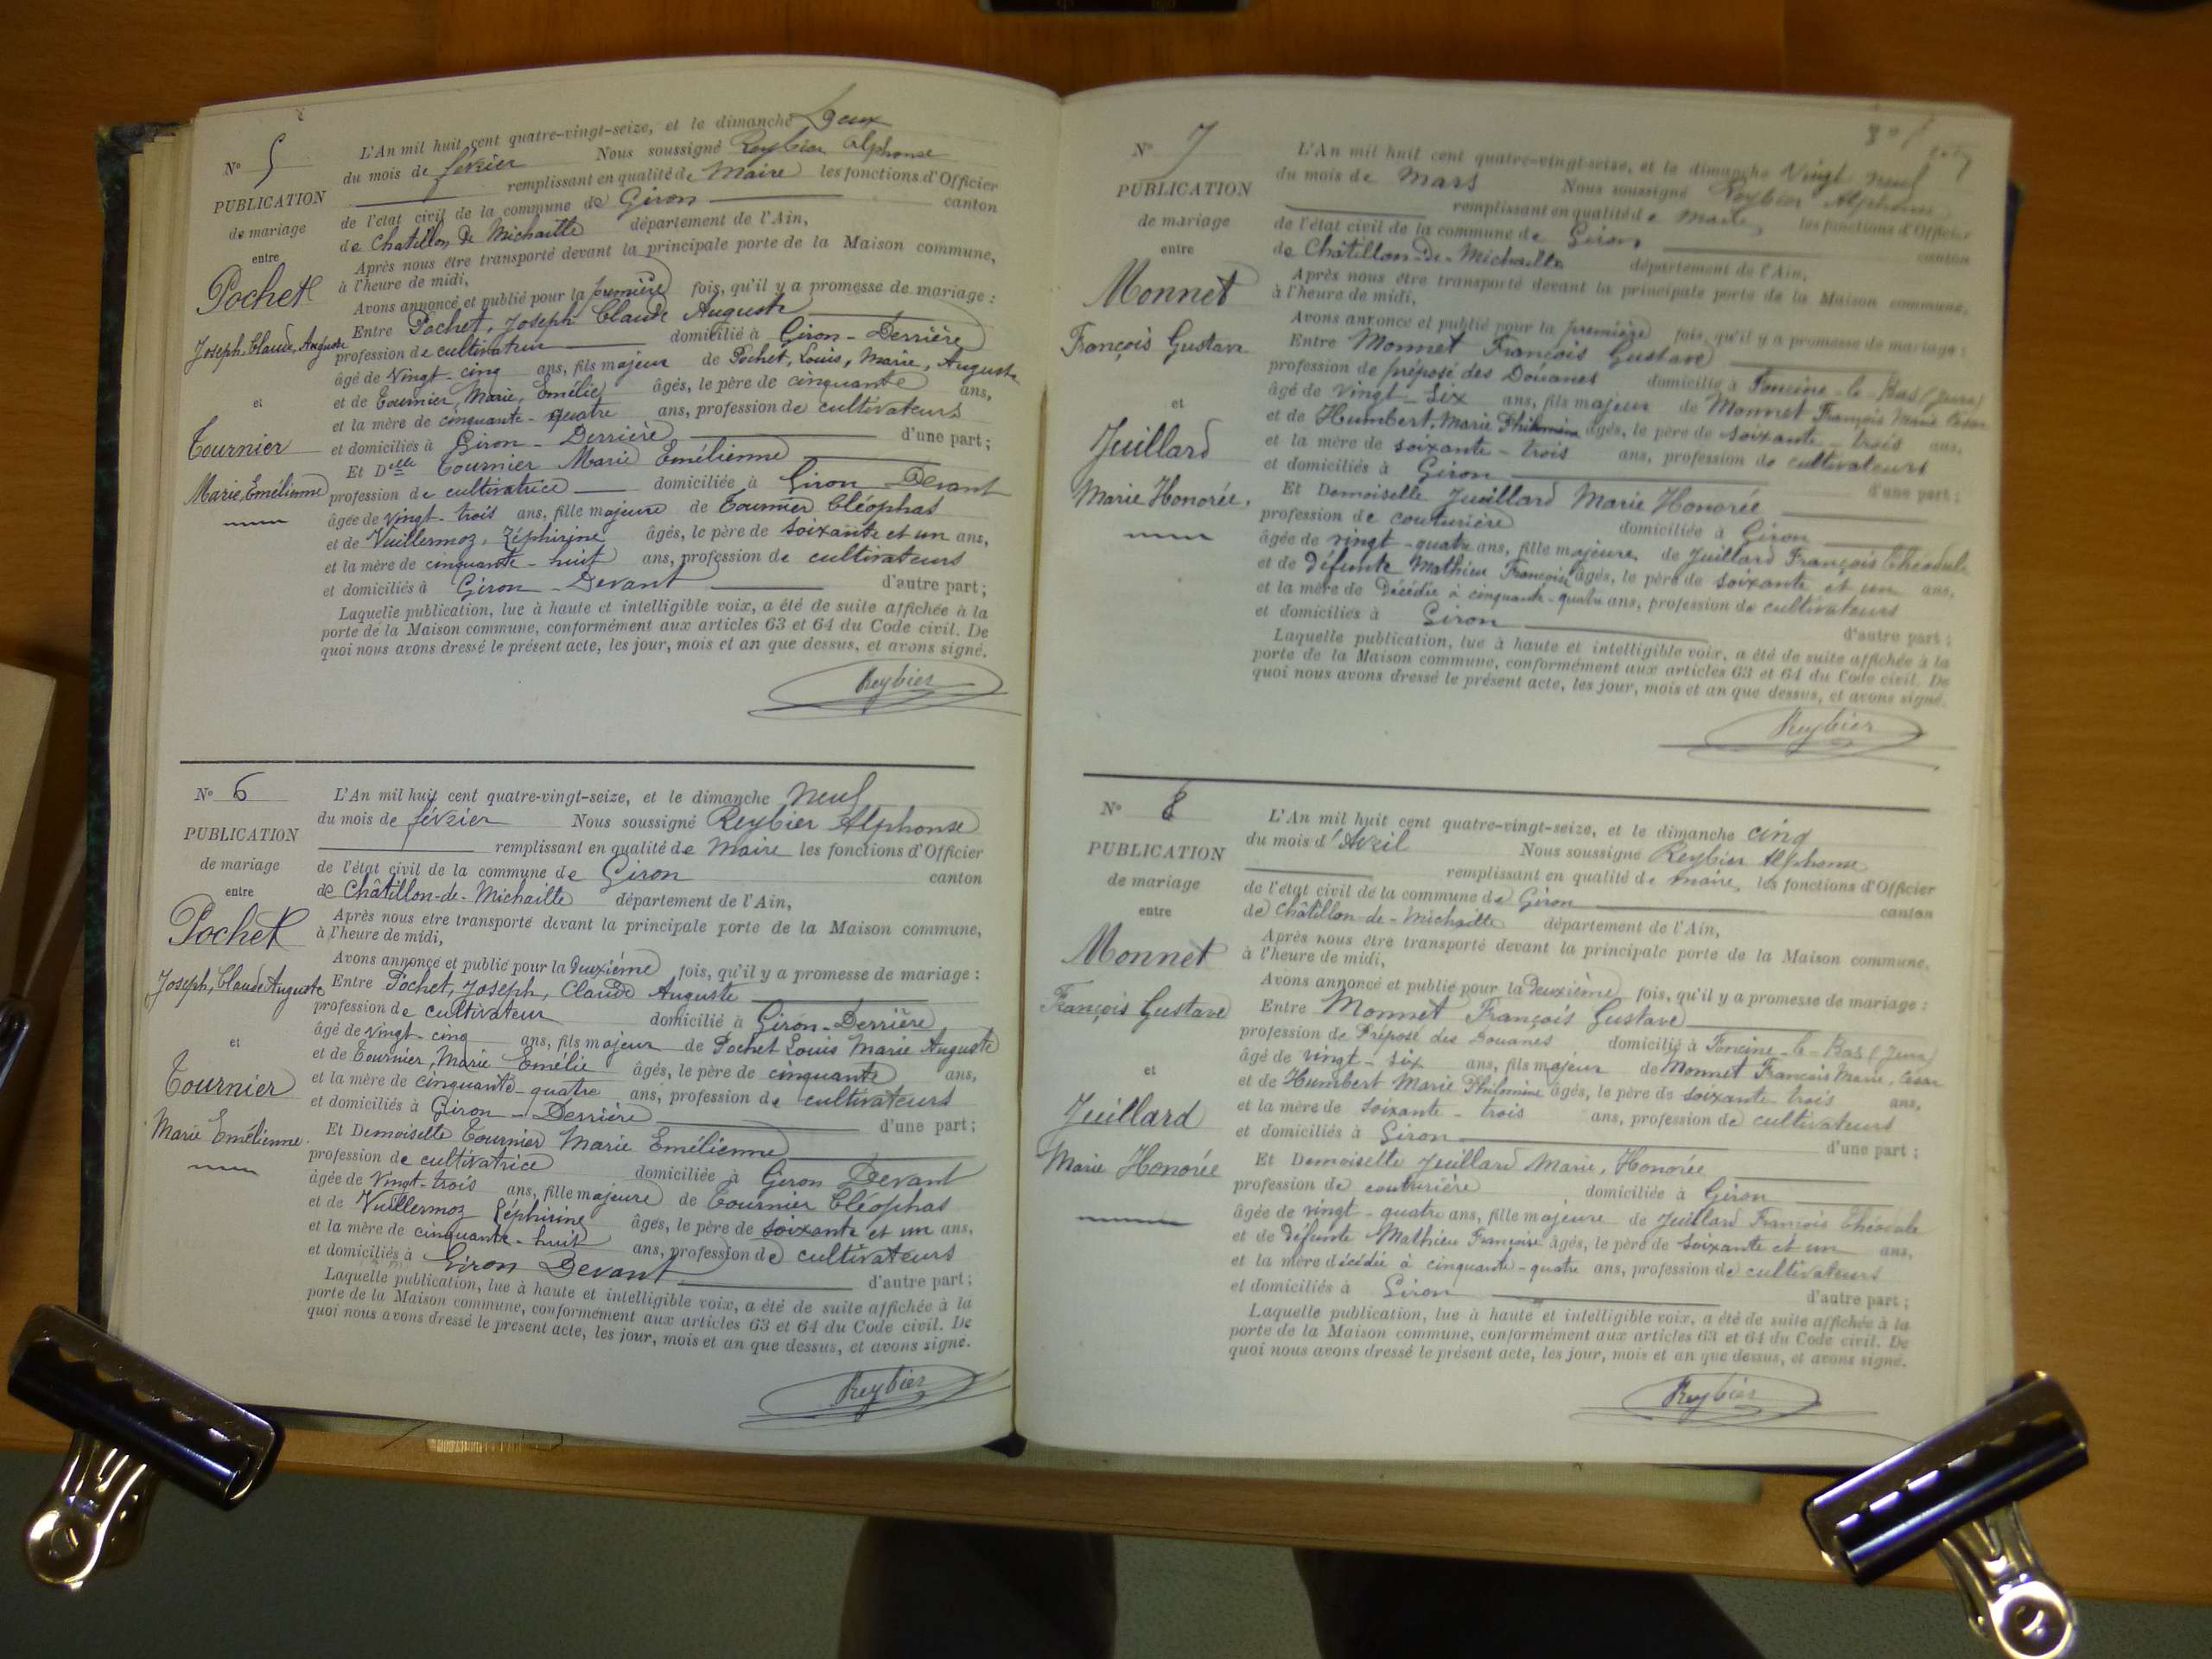 N° 5
PUBLICATION
de mariage
entre
Pochet
Joseph Claude Auguste
et
Tournier
Marie, Emélienne
L'An mil huit cent quatre-vingt-seize, et le dimanche Deux
du mois de février Nous soussigné Reybier Alphonse
remplissant en qualité de Maire les fonctions d'Officier
de l'état civil de la commune de Giron canton
de Chatillon De Michaille département de l'Ain,
Après nous être transporté devant la principale porte de la Maison commune,
à l'heure de midi,
Avons annoncé et publié pour la première fois, qu'il y a promesse de mariage :
Entre Pochet, Joseph Claude Auguste
profession de cultivateur domicilié à Giron - Derrière
âgé de Vingt-cinq ans, fils majeur de Pochet, Louis, Marie, Auguste
et de Tournier, Marie, Emélie âgés, le père de cinquante ans,
et la mère de cinquante-quatre ans, profession de cultivateurs
et domiciliés à Giron - Derrière d'une part ;
Et Delle Tournier Marie Emélienne
profession de cultivatrice domiciliée à Giron Devant
âgée de vingt-trois ans, fille majeure de Tournier Cléophas
et de Vuillermoz, Zéphirine âgés, le père de soixante et un ans,
et la mère de cinquante-huit ans, profession de cultivateurs
et domiciliés à Giron - Devant d'autre part ;
Laquelle publication, lue à haute et intelligible voix, a été de suite affichée à la
porte de la Maison commune, conformément aux articles 63 et 64 du Code civil. De
quoi nous avons dressé le présent acte, les jour, mois et an que dessus, et avons signé.
Reybier
N° 6
PUBLICATION
de mariage
entre
Pochet
Joseph, Claude Auguste
et
Tournier
Marie Emélienne
L'An mil huit cent quatre-vingt-seize, et le dimanche neuf
du mois de février Nous soussigné Reybier Alphonse
remplissant en qualité de Maire les fonctions d'Officier
de l'état civil de la commune de Giron canton
de Châtillon-de-Michaille département de l'Ain,
Après nous etre transporté devant la principale porte de la Maison commune,
à l'heure de midi,
Avons annoncé et publié pour la Deuxième fois, qu'il y a promesse de mariage :
Entre Pochet, Joseph, Claude Auguste
profession de cultivateur domicilié à Giron-Derrière
âgé de vingt-cinq ans, fils majeur de Pochet Louis Marie Auguste
et de Tournier, Marie Emélie âgés, le père de cinquante ans,
et la mère de cinquante-quatre ans, profession de cultivateurs
et domiciliés à Giron - Derrière d'une part ;
Et Demoiselle Tournier Marie Emélienne
profession de cultivatrice domiciliée à Giron Devant
âgée de Vingt-trois ans, fille majeure de Tournier Cléophas
et de Vuillermoz Zéphirine âgés, le père de soixante et un ans,
et la mère de cinquante-huit ans, profession de cultivateurs
et domiciliés à Giron Devant d'autre part ;
Laquelle publication, lue à haute et intelligible voix, a été de suite affichée à la
porte de la Maison commune, conformément aux articles 63 et 64 du Code civil. De
quoi nous avons dressé le présent acte, les jour, mois et an que dessus, et avons signé.
Reybier
N° 7
PUBLICATION
de mariage
entre
Monnet
François Gustave
et
Juillard
Marie Honorée,
L'An mil huit cent quatre-vingt-seize, et le dimanche Vingt neuf
du mois de Mars Nous soussigné Reybier Alphonse
remplissant en qualité de Maire, les fonctions d'Officier
de l'état civil de la commune de Giron canton
de Châtillon-de-Michaille département de l'Ain,
Après nous être transporté devant la principale porte de la Maison commune,
à l'heure de midi,
Avons annoncé et publié pour la première fois, qu'il y a promesse de mariage :
Entre Monnet François Gustave
profession de préposé des Douanes domicilié à Foncine-le-Bas (Jura)
âgé de vingt-six ans, fils majeur de Monnet François Marie César
et de Humbert, Marie Philomène âgés, le père de soixante-trois ans,
et la mère de soixante-trois ans, profession de cultivateurs
et domiciliés à Giron d'une part ;
Et Demoiselle Juillard Marie Honorée
profession de couturière domiciliée à Giron
âgée de vingt-quatre ans, fille majeure de Juillard François Théodule
et de défunte Mathieu Françoise âgés, le père de soixante et un ans,
et la mère de Décédée à cinquante-quatre ans, profession de cultivateurs
et domiciliés à Giron d'autre part ;
Laquelle publication, lue à haute et intelligible voix, a été de suite affichée à la
porte de la Maison commune, conformément aux articles 63 et 64 du Code civil. De
quoi nous avons dressé le présent acte, les jour, mois et an que dessus, et avons signé.
Reybier
N° 8
PUBLICATION
de mariage
entre
Monnet
François Gustave
et
Juillard
Marie Honorée
L'An mil huit cent quatre-vingt-seize, et le dimanche cinq
du mois d'Avril Nous soussigné Reybier Alphonse
remplissant en qualité de maire, les fonctions d'Officier
de l'état civil de la commune de Giron canton
de Châtillon-de-Michaille département de l'Ain,
Après nous être transporté devant la principale porte de la Maison commune,
à l'heure de midi,
Avons annoncé et publié pour la Deuxième fois, qu'il y a promesse de mariage :
Entre Monnet François Gustave
profession de Préposé des Douanes domicilié à Foncine-le-Bas (Jura)
âgé de vingt-six ans, fils majeur de Monnet François Marie, César
et de Humbert Marie Philomène âgés, le père de soixante-trois ans,
et la mère de soixante-trois ans, profession de cultivateurs
et domiciliés à Giron d'une part ;
Et Demoiselle Juillard Marie, Honorée
profession de couturière domiciliée à Giron
âgée de vingt-quatre ans, fille majeure de Juillard François Théodule
et de défunte Mathieu Françoise âgés, le père de soixante et un ans,
et la mère décédée à cinquante-quatre ans, profession de cultivateurs
et domiciliés à Giron d'autre part ;
Laquelle publication, lue à haute et intelligible voix, a été de suite affichée à la
porte de la Maison commune, conformément aux articles 63 et 64 du Code civil. De
quoi nous avons dressé le présent acte, les jour, mois et an que dessus, et avons signé.
Reybier